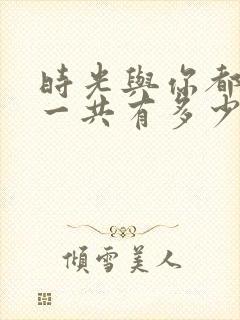 時光與你都
一共有多少
傾雪美人